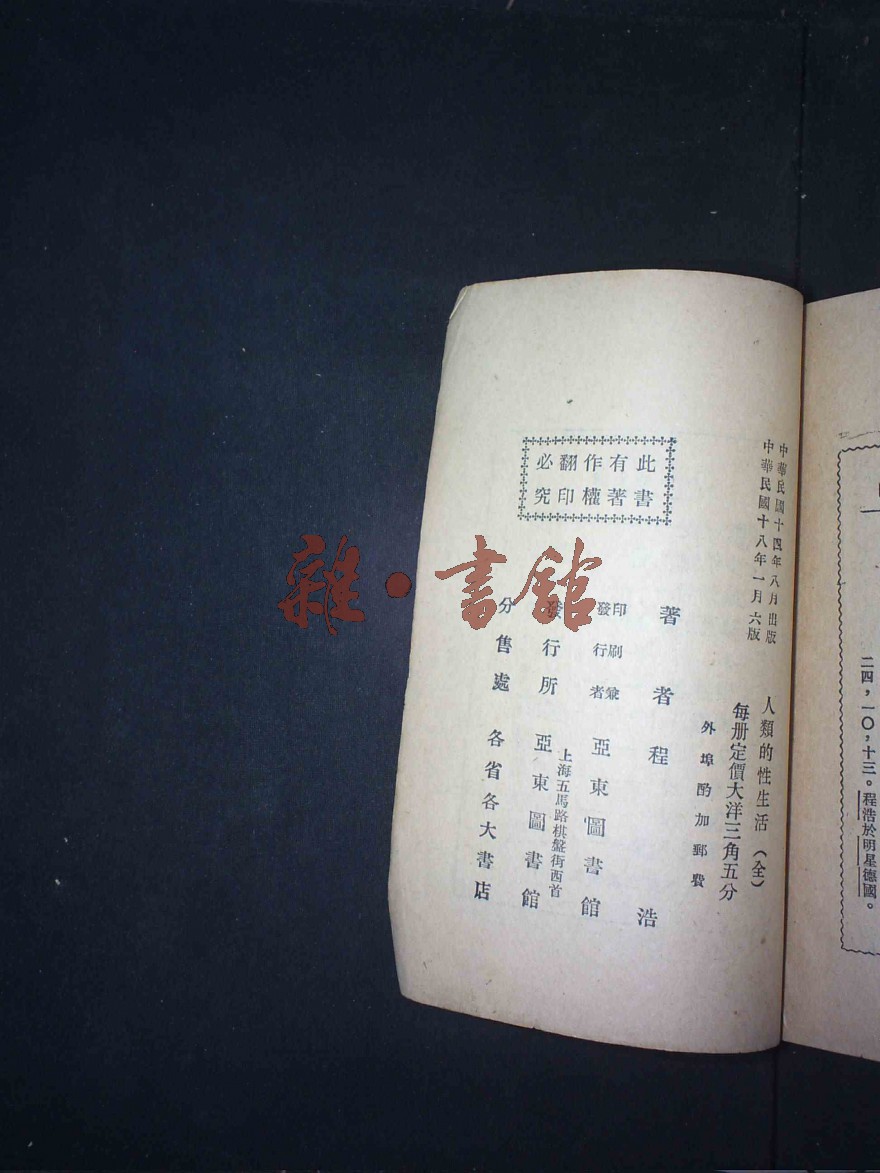 二四，一〇，十三。程浩於明星德國。
中華民國十四年八月出版
中華民國十八年一月六版
人類的性生活（全）
每册定價大洋三角五分
外埠酌加郵費
此書
有著
作權
翻印
必究
著者 程浩
印刷兼
發行者 亞東圖書館
發行所 亞東圖書館
上海五馬路棋盤街西首
分售處 各省各大書店
雜·書館